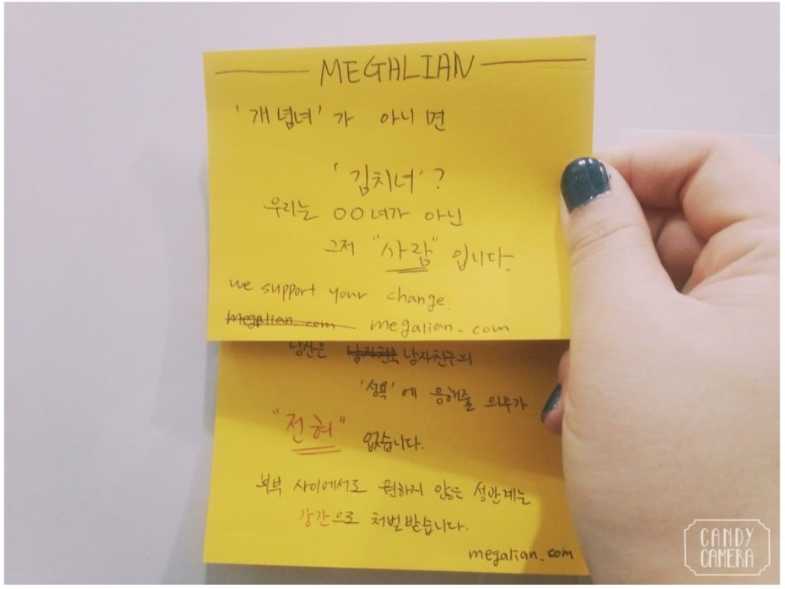 MEGALIAN
'개념녀'가 아니면
'김치녀'?
우리는 OO녀가 아닌
그저 "사람"입니다.
we support your change.
megalian.com megalian.com
남자친구의
에 응해줄 의무가
"전혀" 없습니다.
부부 사이에서도 원하지 않는 성관계는
강간으로 처벌받습니다.
megalian.com
CANDY
CAMERA